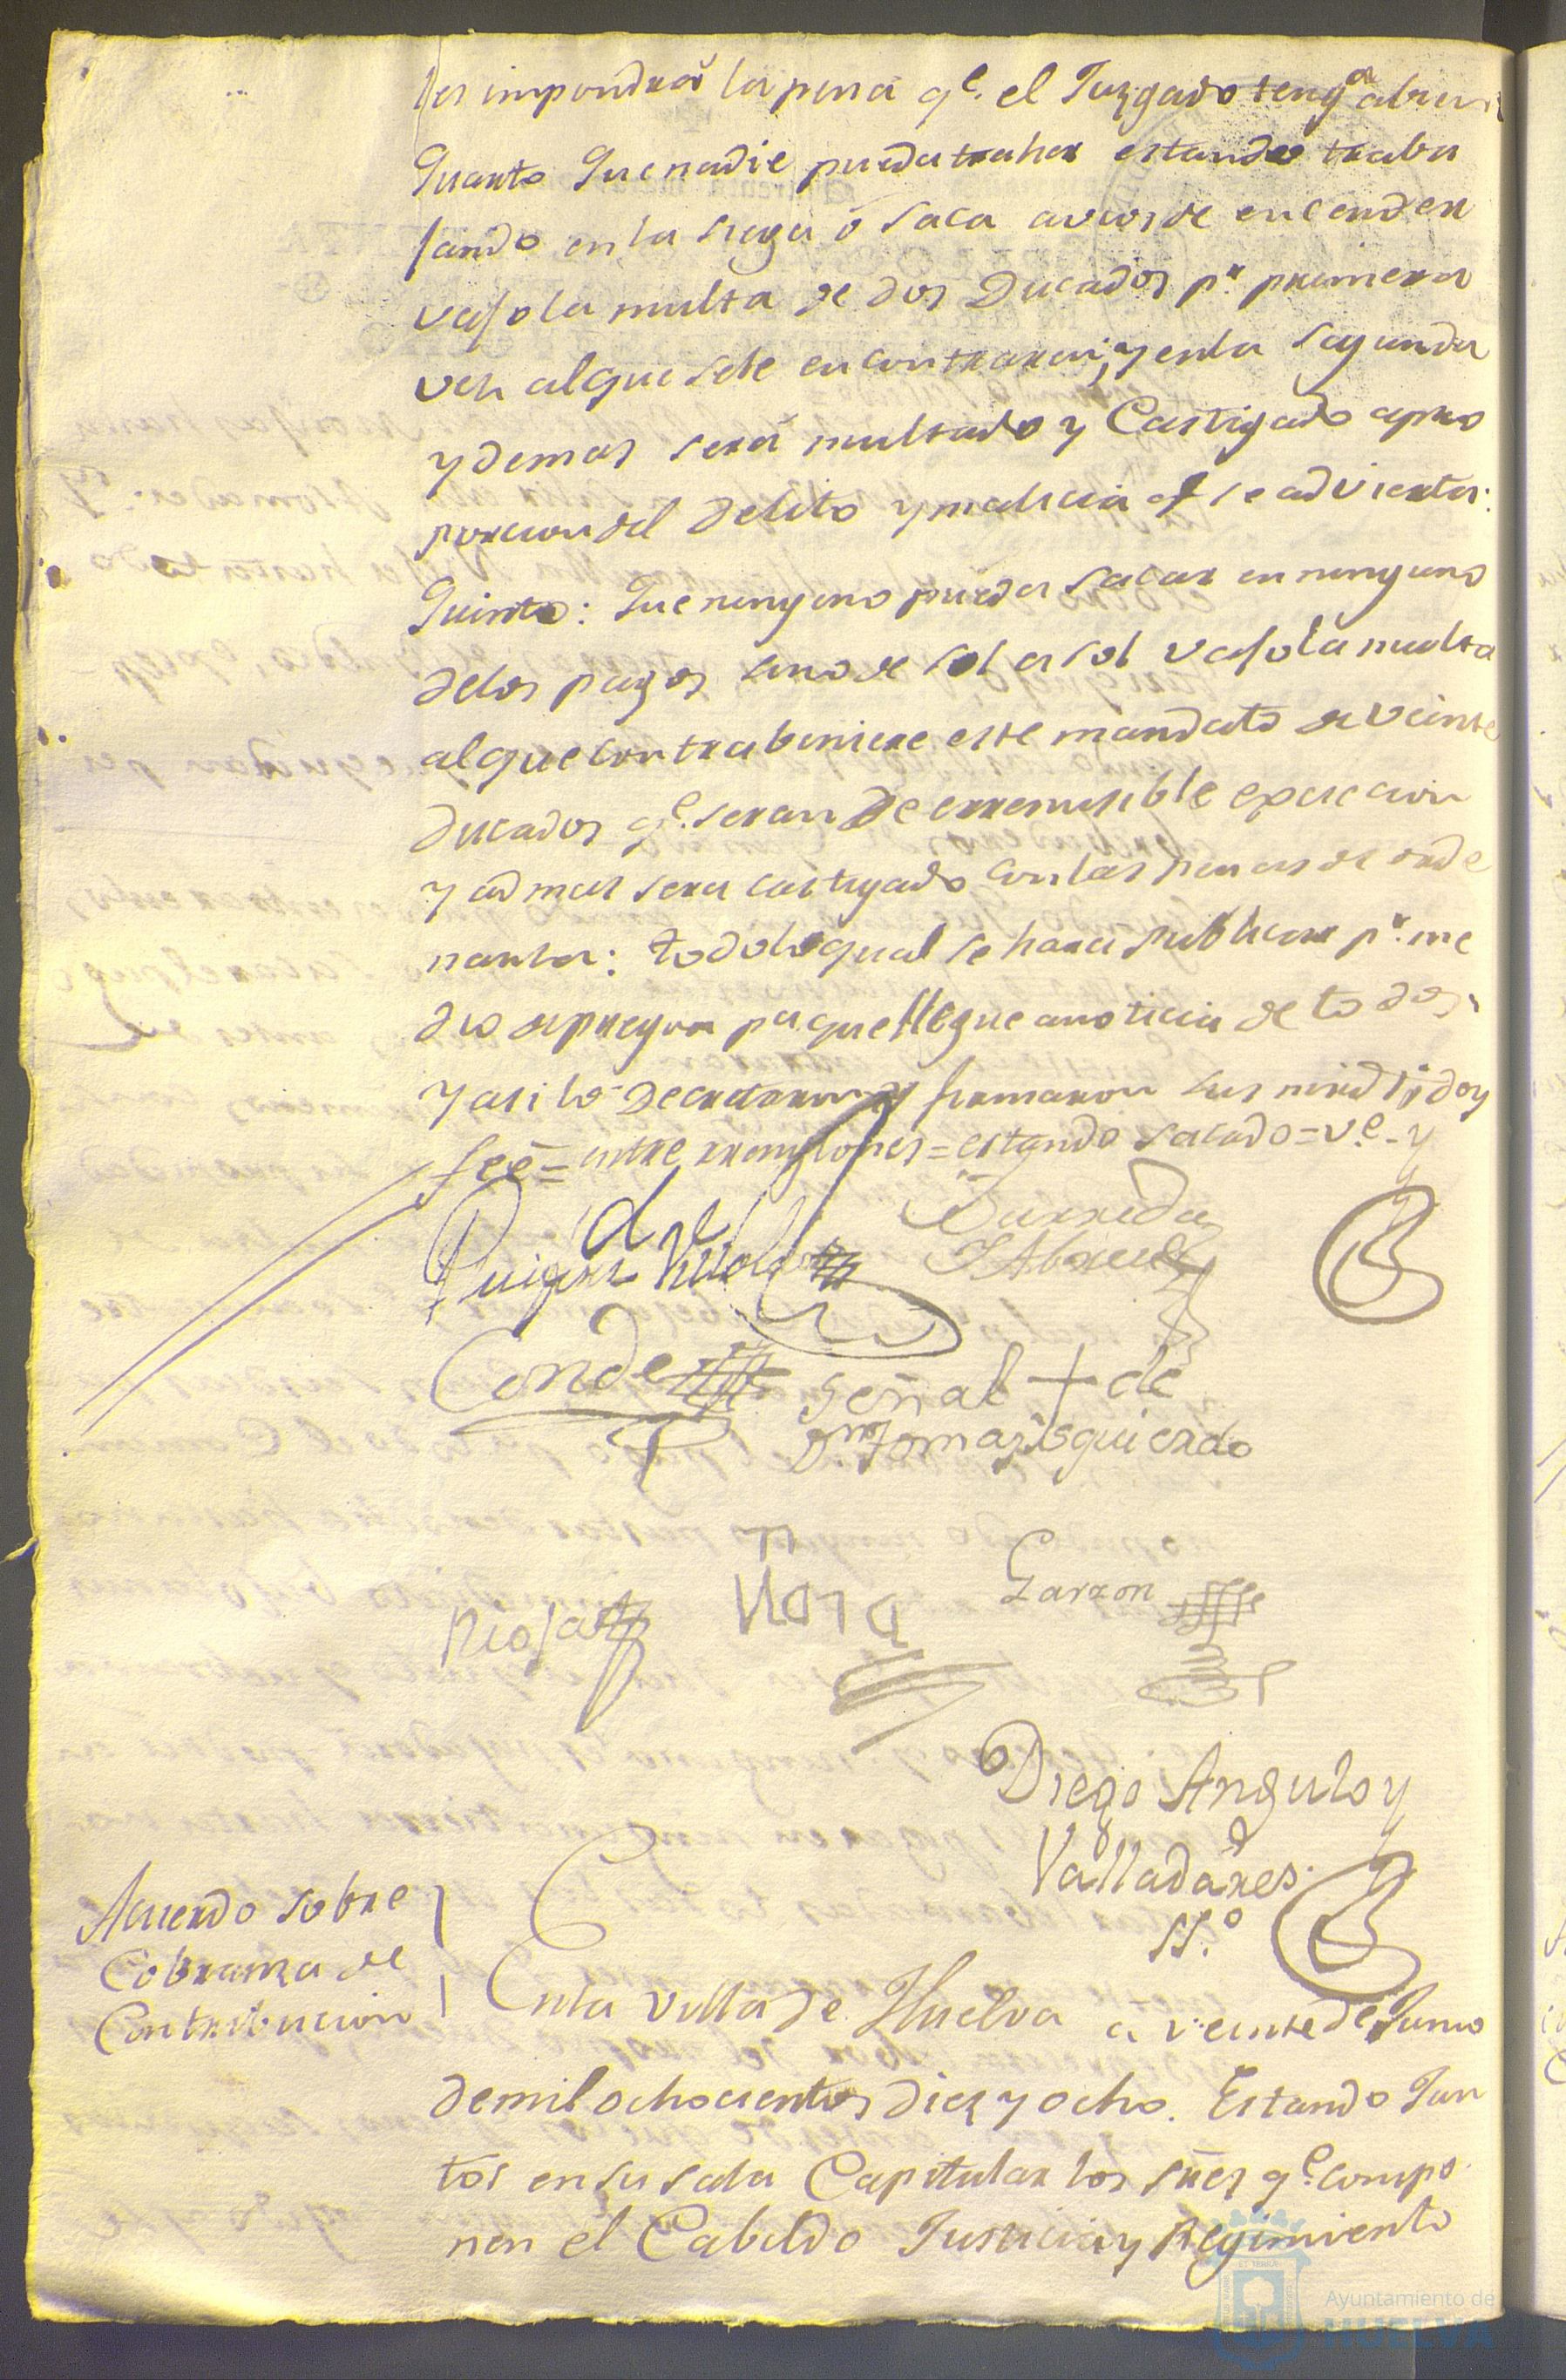 les impondrá la pena qe. el Juzgado tenga abien
Quarto Que nadie pueda traher estando traba
jando en la siega ó saca avios de encender
vajo la multa de dos Ducados pr. primera
vez al que sele encontraren; y enla segunda
y demas será multado y Castigado apro
porcion del delito y malicia qe se advierta:
Quinto: Que ninguno pueda sacar en ninguno
delos pagos sino de sol a sol vajo la multa
alque contrabiniere este mandato de veinte
Ducados qe. seran de erremisible exsecion
y ad mas sera castigado con las penas de orde
nanza: todo loqual se hara publicar pr. me
dio de pregon pa que llegue a noticia de todos:
y asi lo Decretaron y firmaron sus mrds; doy
feé = entre renglones = estando sacado = ve. - y
Barreda
Conde
Señal + de
Dn. Tomas Isquierdo
Rioja
Mora
Garzon
Diego Angulo y
Valladares.
SS.o
Acuerdo sobre
Cobranza de
Contribucion
Enla villa de Huelva á veinte de Junio
de mil ochocientos diez y ocho. Estando Jun
tos en su sala Capitular los sres qe. compo
nen el Cabildo Justicia y Regimiento
Ayuntamiento de
HUELVA